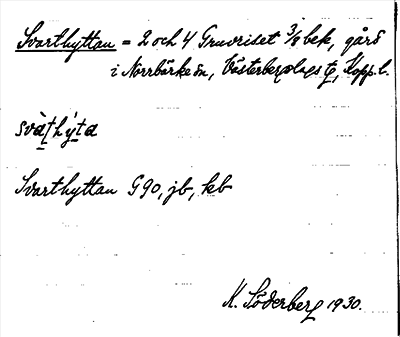 Svarthyttan = 2 och 4 Gruvriset 3/8 bek, gård
i Norrbärke sn, Västerbergslags tg, Kopp. l.
svàt̠hy̠ta
Svarthyttan G90, jb, kb
K. Söderberg 1930.